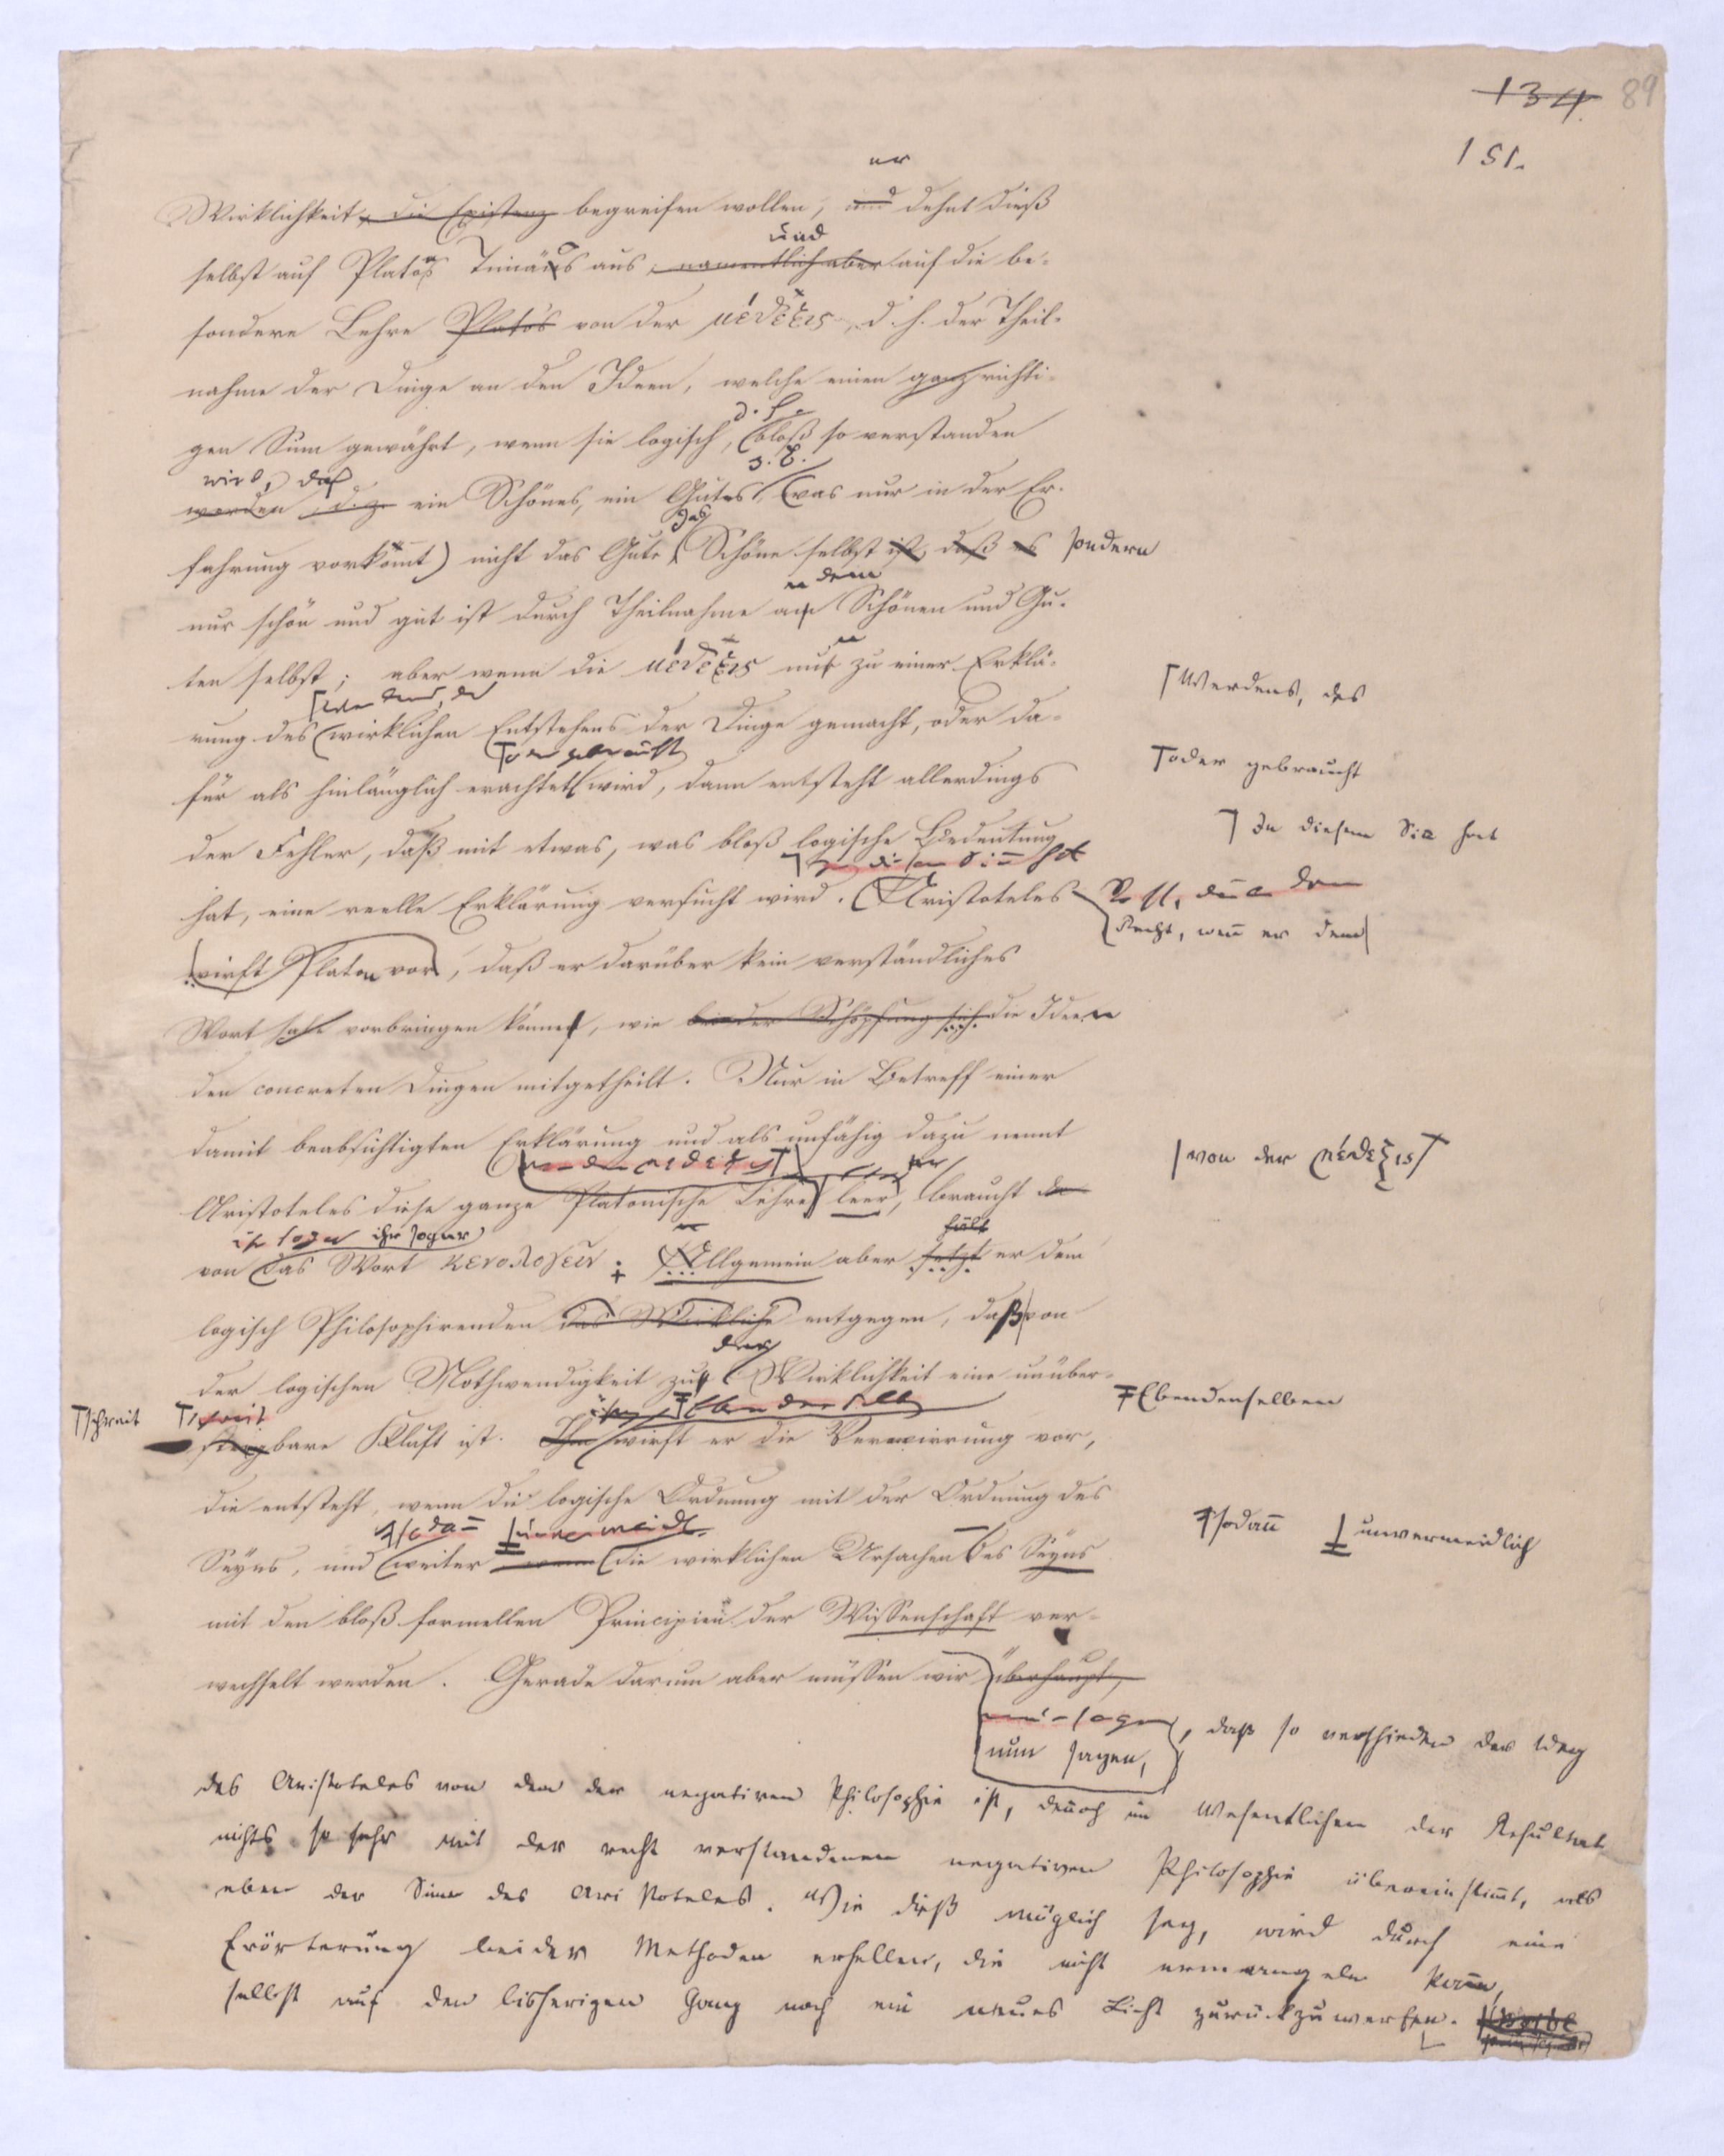 134. 89
151.
er
Wirklichkeit, die Existenz begreifen wollen; und dehnt dieß
und
selbst auf Platos Timäus aus, namentlich aber auf die be-
sondere Lehre Platos von der μέθεξις, d. h. der Theil-
nahme der Dinge an den Ideen, welche einen ganz richti-
d. h.
gen Sinn gewährt, wenn sie logisch, bloß so verstanden
wird, daß z. B.
werden, d. h. ein Schönes, ein Gutes (was nur in der Er-
das
fahrung vorkommt) nicht das Gute, Schöne selbst ist, daß es sondern
n dem
nur schön und gut ist durch Theilnahme am Schönen und Gu-
ten selbst; aber wenn die μέθεξις nun zu einer Erklä-
Werdens, des
rung des wirklichen Entstehens der Dinge gemacht, oder da-
oder gebraucht
für als hinlänglich erachtet wird, dann entsteht allerdings
der Fehler, daß mit etwas, was bloß logische Bedeutung
In diesem Sinn hat
hat, eine reelle Erklärung versucht wird. Aristoteles
Recht, wenn er dem
wirft Platon vor, daß er darüber kein verständliches
Wort habe vorbringen können, wie bei der Schöpfung sich die Ideen
den concreten Dingen mitgetheilt. Nur in Betreff einer
damit beabsichtigten Erklärung und als unfähig dazu nennt
von der μέθεξις
Aristoteles diese ganze Platonische Lehre leer, braucht
ihr sogar
von das Wort κενολογεῖν. Allgemein aber setzt er dem
hält
logisch Philosophirenden das Wirkliche entgegen, daß von
der
der logischen Nothwendigkeit zur Wirklichkeit eine unüber-
schreit Ebendenselben
steigbare Kluft ist. Ihm wirft er die Verwirrung vor,
die entsteht, wenn die logische Ordnung mit der Ordnung des
sodann unvermeidlich
Seyns, und weiter wenn die wirklichen Ursachen des Seyns
mit den bloß formellen Principien der Wissenschaft ver-
wechselt werden. Gerade darum aber müssen wir überhaupt,
nun sagen, daß so verschieden der Weg
des Aristoteles von dem der negativen Philosophie ist, dennoch im Wesentlichen der Resultat
nichts so sehr mit der recht verstandenen negativen Philosophie übereinstimmt, als
eben der Sinn des Aristoteles. Wie dieß möglich sey, wird durch eine
Erörterung beider Methoden erhellen, die nicht ermangeln kann,
selbst auf den bisherigen Gang noch ein neues Licht zurückzuwerfen.